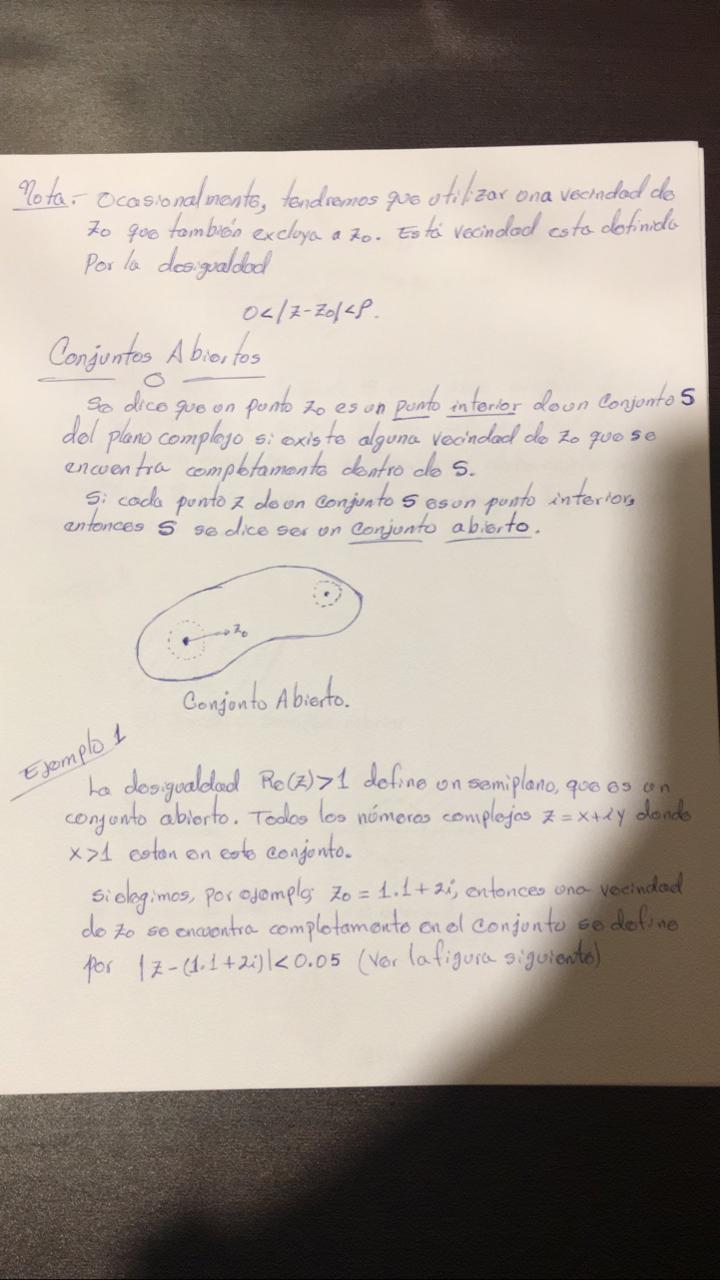 Nota.- Ocasionalmente, tendremos que utilizar una vecindad de
z0 que también excluya a z0. Está vecindad esta definida
Por la desigualdad
0<|z-z0|<ρ.
Conjuntos Abiertos
Se dice que un punto z0 es un punto interior de un Conjunto S
del plano complejo si existe alguna vecindad de z0 que se
encuentra completamente dentro de S.
Si cada punto z de un conjunto S es un punto interior,
entonces S se dice ser un conjunto abierto.
z0
Conjunto Abierto.
Ejemplo 1
La desigualdad Re(z)>1 define un semiplano, que es un
conjunto abierto. Todos los números complejos z=x+iy donde
x>1 estan en este conjunto.
Si elegimos, por ejemplo; z0=1.1+2i, entonces una vecindad
de z0 se encuentra completamente en el Conjunto se define
por |z-(1.1+2i)|<0.05 (Ver la figura siguiente)